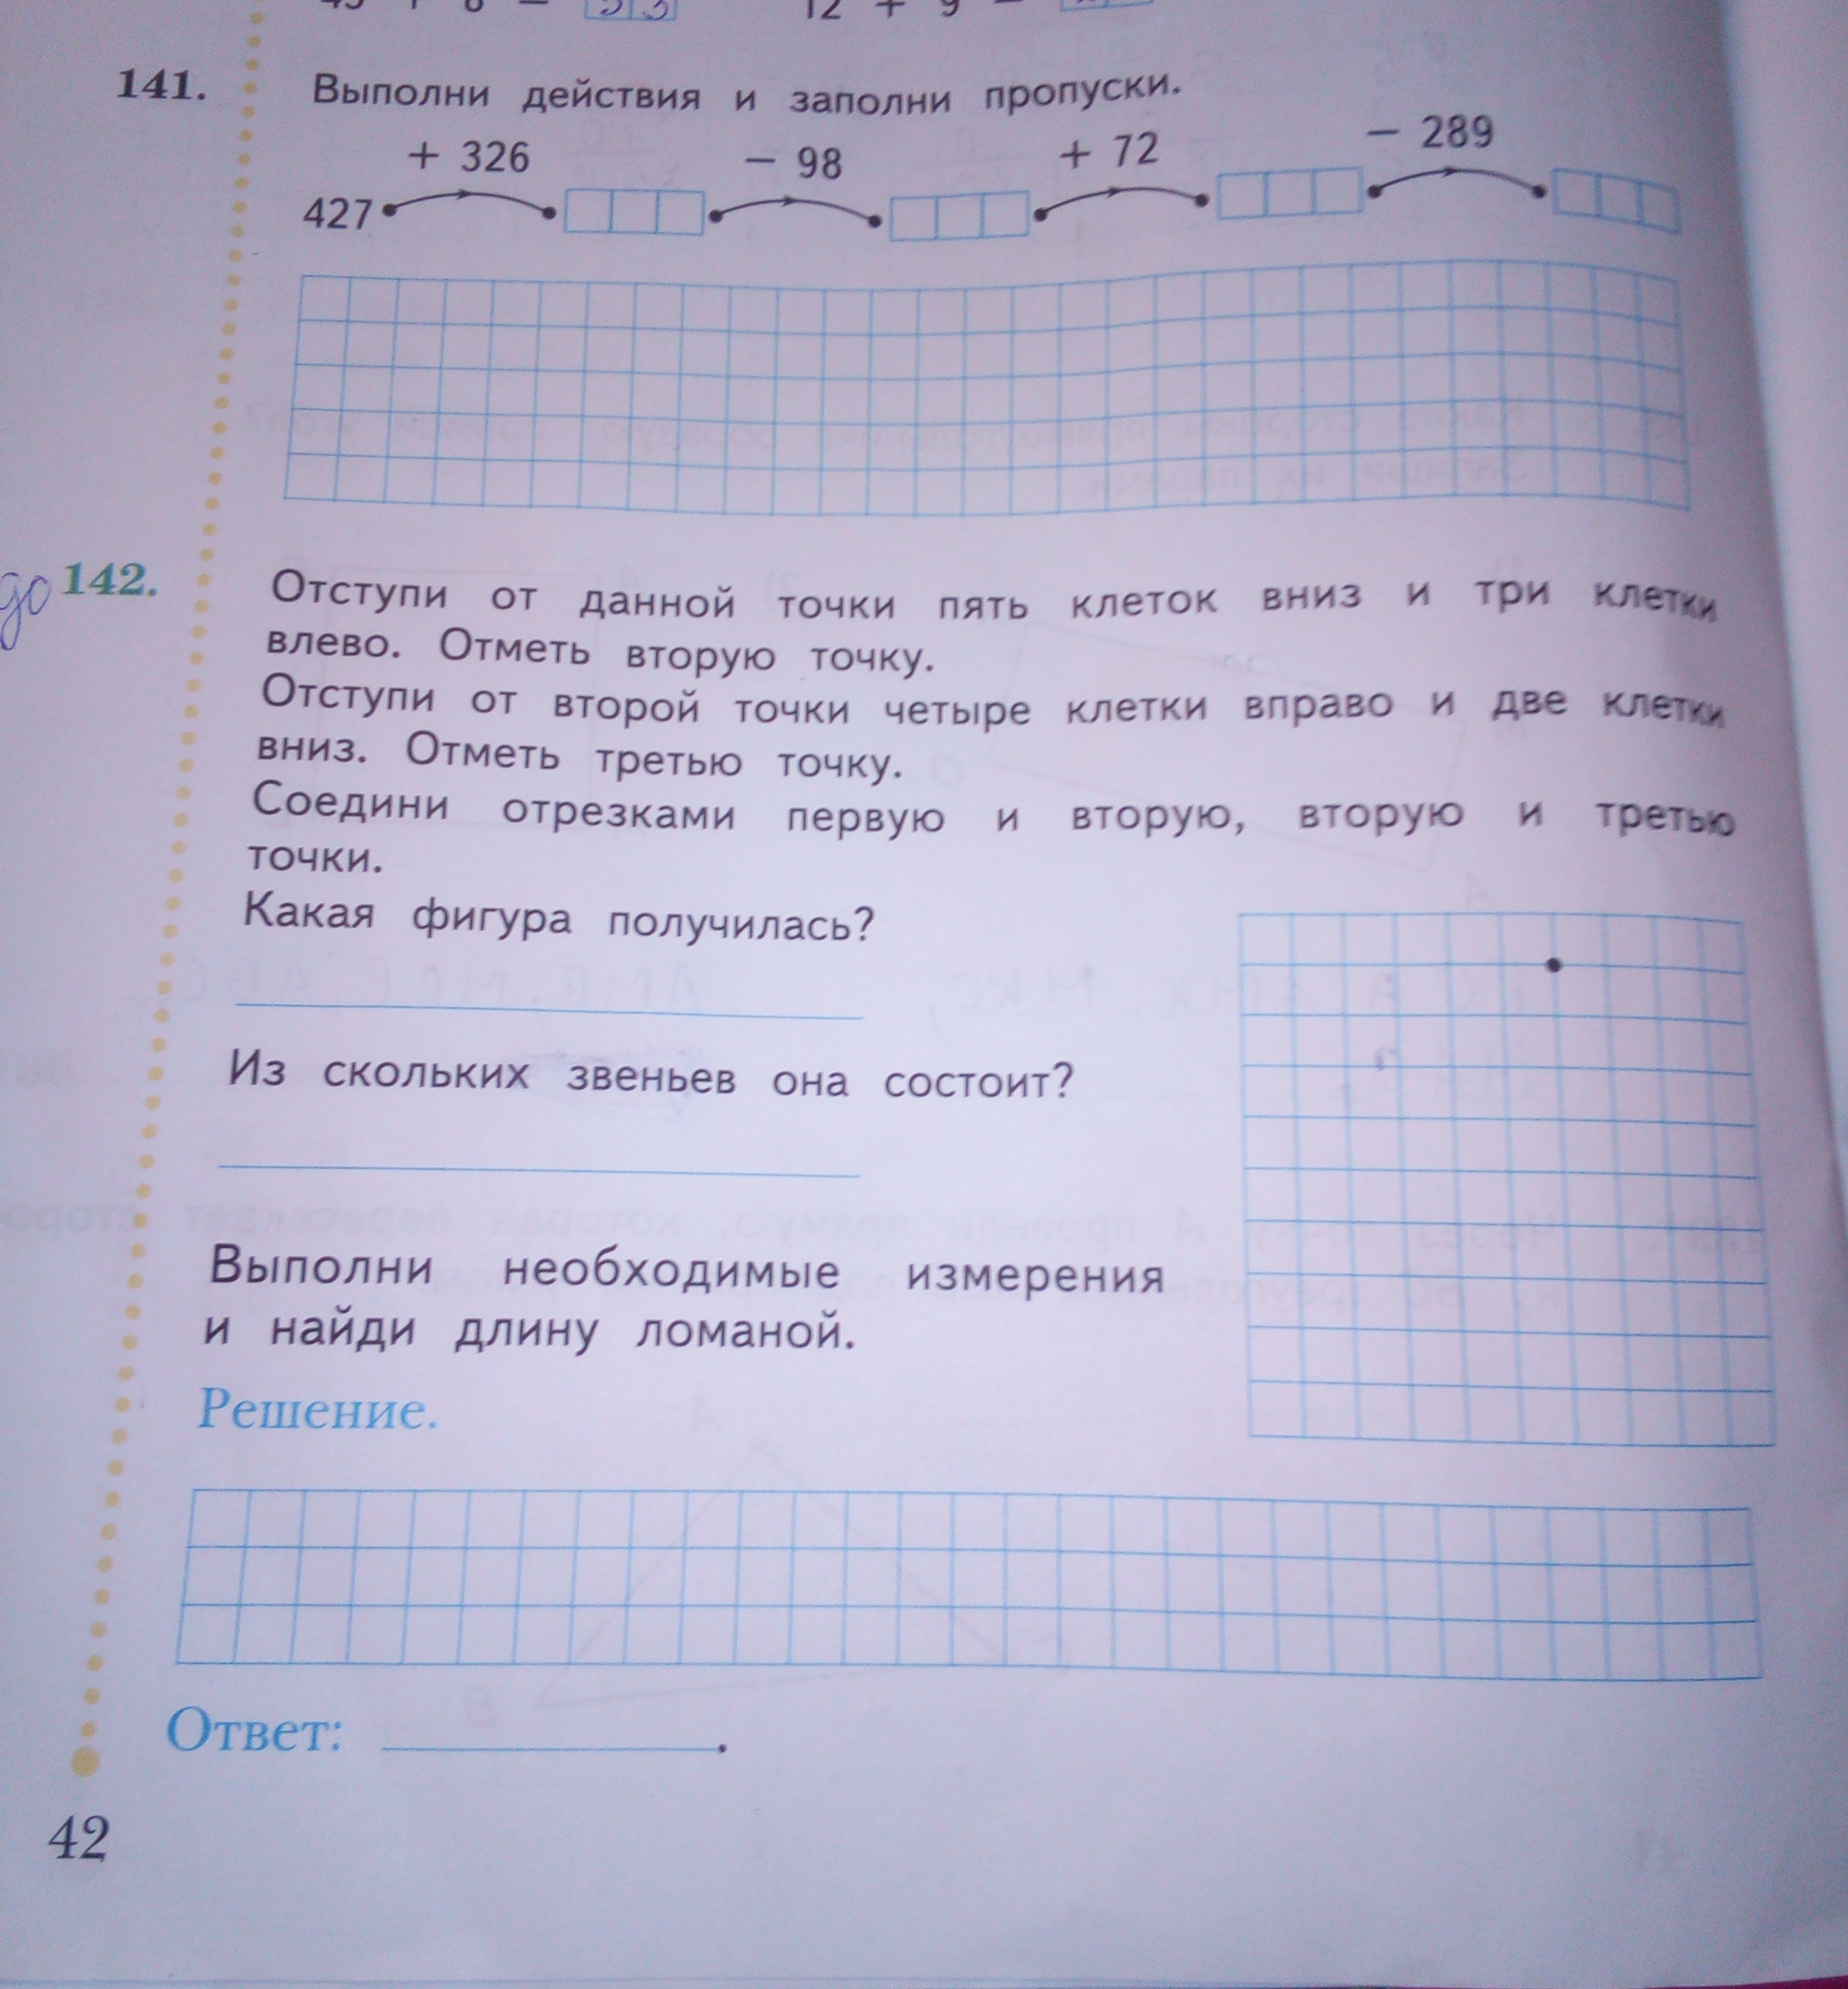 12 + 9
141. Выполни действия и заполни пропуски.
+ 326 − 98 + 72 − 289
427
до 142. Отступи от данной точки пять клеток вниз и три клетки
влево. Отметь вторую точку.
Отступи от второй точки четыре клетки вправо и две клетки
вниз. Отметь третью точку.
Соедини отрезками первую и вторую, вторую и третью
точки.
Какая фигура получилась?
Из скольких звеньев она состоит?
Выполни необходимые измерения
и найди длину ломаной.
Решение.
Ответ: .
42